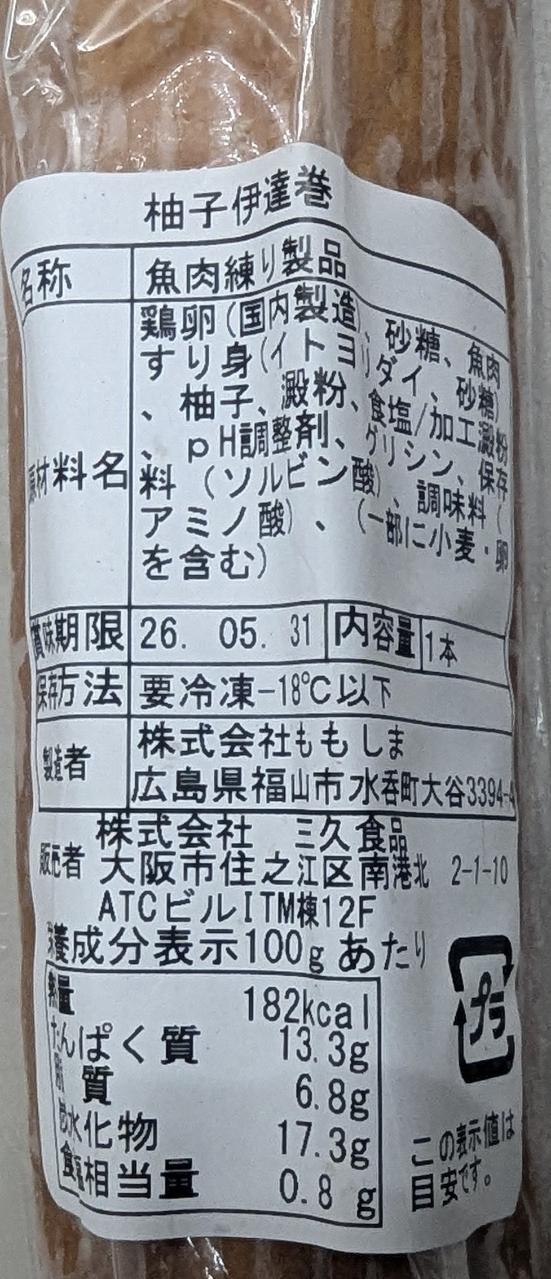 柚子伊達巻
名称 魚肉練り製品
原材料名 鶏卵(国内製造)、砂糖、魚肉
すり身(イトヨリダイ、砂糖)
、柚子、澱粉、食塩/加工澱粉
、pH調整剤、グリシン、保存
料(ソルビン酸)、調味料(
アミノ酸)、(一部に小麦・卵
を含む)
賞味期限 26. 05. 31 内容量 1本
保存方法 要冷凍-18℃以下
製造者 株式会社ももしま
広島県福山市水呑町大谷3394-4
販売者 株式会社 三久食品
大阪市住之江区南港北 2-1-10
ATCビルITM棟12F
栄養成分表示100gあたり
熱量 182kcal
たんぱく質 13.3g
脂質 6.8g
炭水化物 17.3g
食塩相当量 0.8g
プラ
この表示値は
目安です。